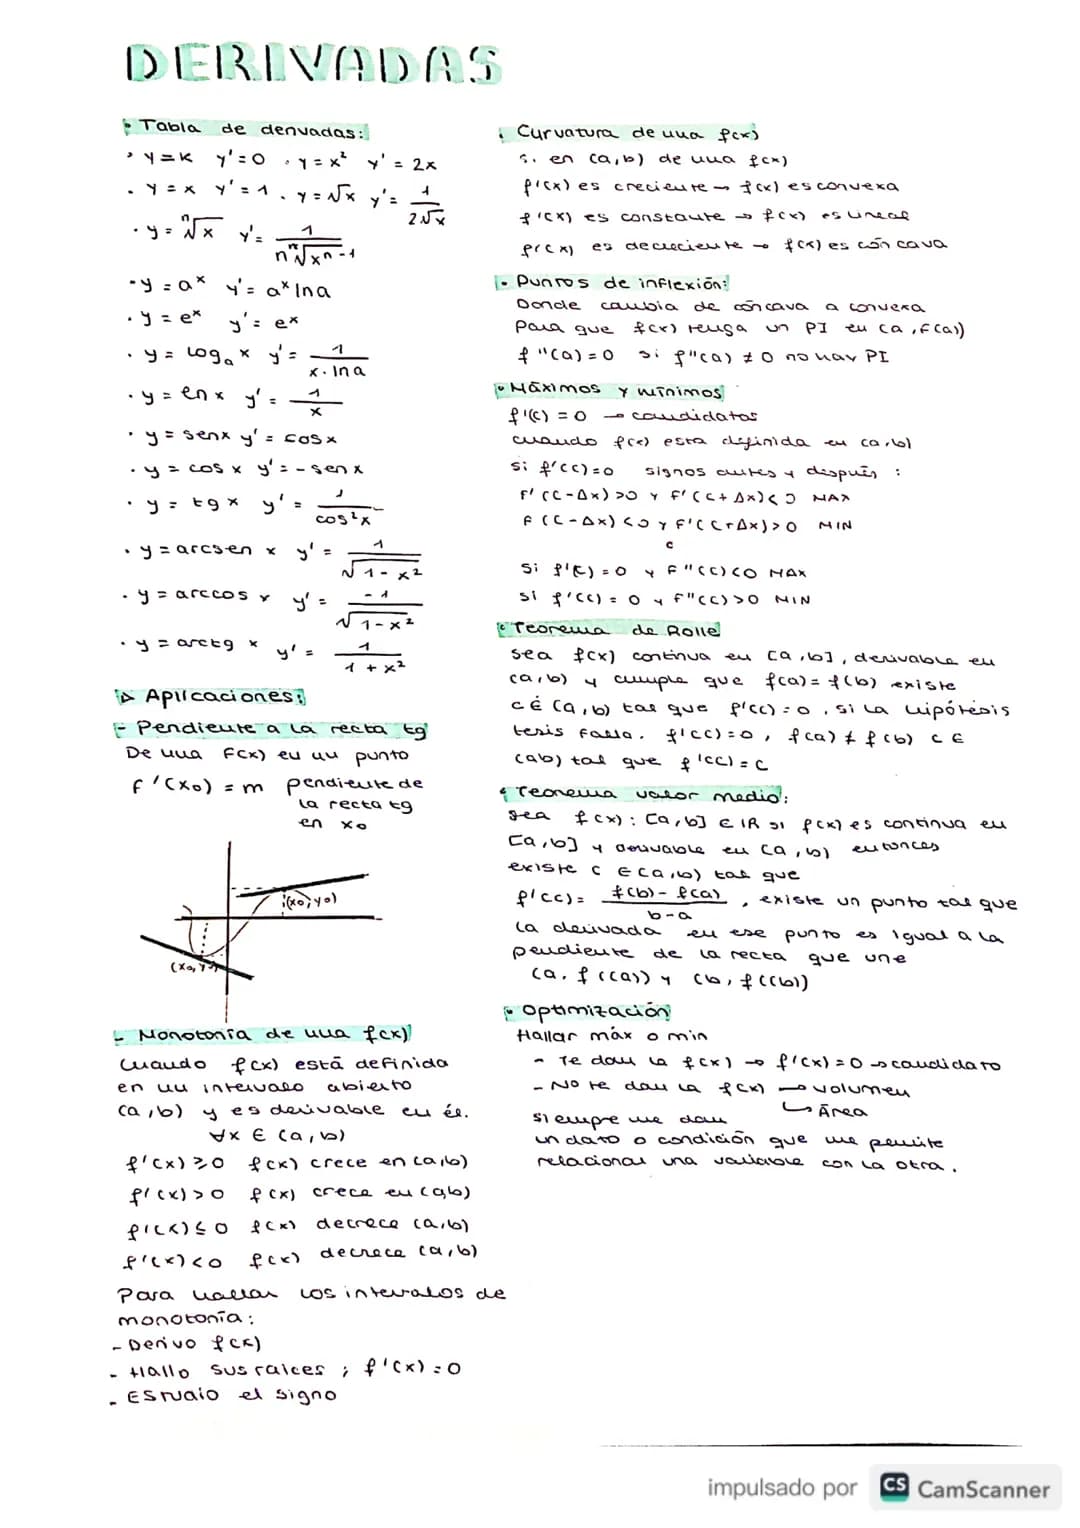 DERIVADAS
· Tabla de derivadas:
· y = k y' = 0 · y = x² y' = 2x
· y = x y' = 1 · y = √x y' = 1/(2√x)
· y = ⁿ√x y' = 1/(n ⁿ√xⁿ⁻¹)
· y = aˣ y' = aˣ ln a
· y = eˣ y' = eˣ
· y = logₐ x y' = 1/(x · ln a)
· y = ln x y' = 1/x
· y = sen x y' = cos x
· y = cos x y' = - sen x
· y = tg x y' = 1/cos²x
· y = arcsen x y' = 1/√(1 - x²)
· y = arccos x y' = -1/√(1 - x²)
· y = arctg x y' = 1/(1 + x²)
Aplicaciones:
- Pendiente a la recta tg
De una F(x) en un punto
f'(x₀) = m pendiente de
la recta tg
en x₀
(x₀, y₀)
(x₀, y₀)
- Monotonía de una f(x)
Cuando f(x) está definida
en un intervalo abierto
(a, b) y es derivable en él.
∀x ∈ (a, b)
f'(x) ≥ 0 f(x) crece en (a, b)
f'(x) > 0 f(x) crece en (a, b)
f'(x) ≤ 0 f(x) decrece (a, b)
f'(x) < 0 f(x) decrece (a, b)
Para hallar los intervalos de
monotonía:
- Derivo f(x)
- Hallo sus raíces ; f'(x) = 0
- Estudio el signo
· Curvatura de una f(x)
Si en (a, b) de una f(x)
f'(x) es creciente → f(x) es convexa
f'(x) es constante → f(x) es lineal
f'(x) es decreciente → f(x) es cóncava
· Puntos de inflexión:
Donde cambia de cóncava a convexa
Para que f(x) tenga un PI en (a, f(a))
f''(a) = 0 si f''(a) ≠ 0 no hay PI
· Máximos y mínimos
f'(c) = 0 → candidatos
cuando f(x) esta definida en (a, b)
si f'(c) = 0 signos antes y después :
F'(c-Δx) > 0 y F'(c+Δx) < 0 MAX
F(c-Δx) < 0 y F'(c+Δx) > 0 MIN
c
Si f'(c) = 0 y F''(c) < 0 MAX
si f'(c) = 0 y F''(c) > 0 MIN
· Teorema de Rolle
sea f(x) continua en [a, b], derivable en
(a, b) y cumple que f(a) = f(b) existe
c ∈ (a, b) tal que f'(c) = 0, si la hipótesis
tesis falla. f'(c) = 0, f(a) ≠ f(b) c ∈
(ab) tal que f'(c) = c
· Teorema valor medio:
sea f(x): [a, b] ∈ ℝ si f(x) es continua en
[a, b] y derivable en (a, b) entonces
existe c ∈ (a, b) tal que
f'(c) = (f(b) - f(a))/(b - a), existe un punto tal que
la derivada en ese punto es igual a la
pendiente de la recta que une
(a, f((a)) y (b, f((b))
· Optimización
Hallar máx o min
- Te dan la f(x) → f'(x) = 0 → candidato
- No te dan la f(x) → volumen
↳ Área
siempre me dan
un dato o condición que me permite
relacionar una variable con la otra.
impulsado por CS CamScanner